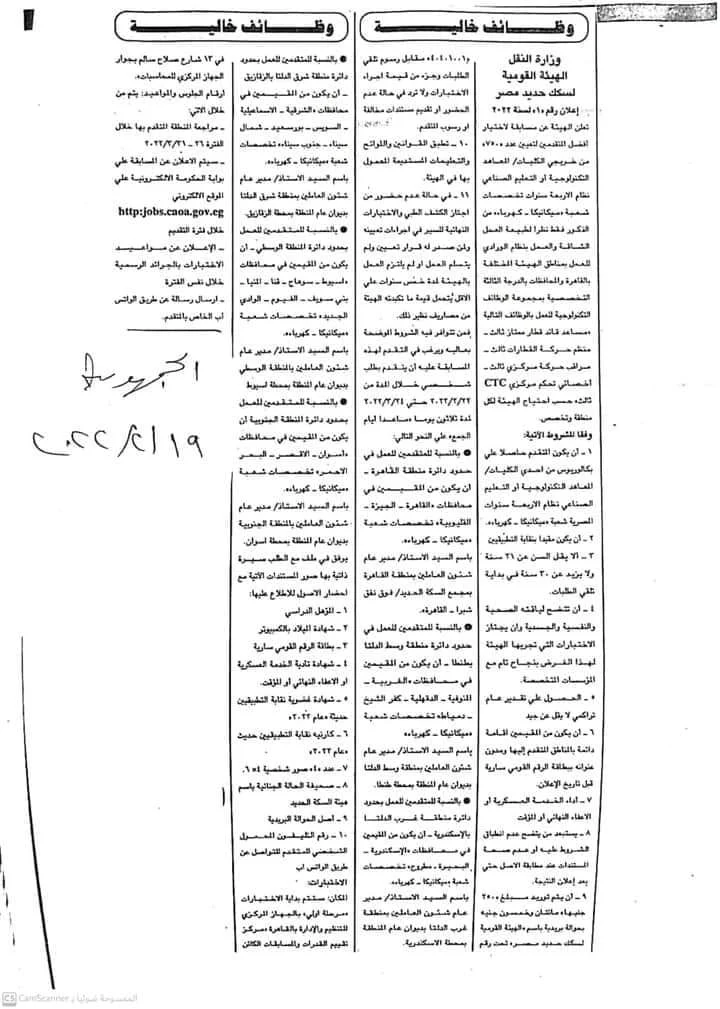 وظائف خالية
وظائف خالية
وزارة النقل
الهيئة القومية
لسكك حديد مصر
إعلان رقم «١» لسنة ٢٠٢٢
تعلن الهيئة عن مسابقة لاختيار
أفضل المتقدمين لتعيين عدد «٧٥٠»
من خريجي الكليات/ المعاهد
التكنولوجية أو التعليم الصناعي
نظام الأربعة سنوات تخصصات
شعبة «ميكانيكا ـ كهرباء» من
الذكور فقط نظرا لطبيعة العمل
الشاقة والعمل بنظام الورادي
للعمل بمناطق الهيئة المختلفة
بالقاهرة والمحافظات بالدرجة الثالثة
التخصصية بمجموعة الوظائف
التكنولوجية للعمل بالوظائف التالية
«مساعد قائد قطار ممتاز ثالث ـ
منظم حركة القطارات ثالث ـ
مراقب حركة مركزي ثالث ـ
أخصائي تحكم مركزي CTC
ثالث» حسب احتياج الهيئة لكل
منطقة وتخصص.
وفقا للشروط الآتية:
١ ـ أن يكون المتقدم حاصلا علي
بكالوريوس من احدي الكليات/
المعاهد التكنولوجية أو التعليم
الصناعي نظام الاربعة سنوات
المصرية شعبة «ميكانيكا ـ كهرباء».
٢ ـ أن يكون مقيدا بنقابة التطبيقيين
٣ ـ ألا يقل السن عن ٢١ سنة
ولا يزيد عن ٣٠ سنة في بداية
تلقي الطلبات.
٤ ـ أن تتضح لياقته الصحية
والنفسية والجسدية وان يجتاز
الاختبارات التي تجريها الهيئة
لهذا الغرض بنجاح تام مع
المؤسسات المتخصصة.
٥ ـ الحصول علي تقدير عام
تراكمي لا يقل عن جيد
٦ ـ أن يكون من المقيمين اقامة
دائمة بالمناطق المتقدم إليها ومدون
عنوانه ببطاقة الرقم القومي سارية
قبل تاريخ الإعلان.
٧ ـ أداء الخدمة العسكرية أو
الاعفاء النهائي أو المؤقت
٨ ـ يستبعد من يتضح عدم انطباق
الشروط عليه أو عدم صحة
المستندات عند مطابقة الاصل حتي
بعد إعلان النتيجة.
٩ ـ أن يتم توريد مبلغ «٢٥٠
جنيها» مائتان وخمسون جنيه
بحوالة بريدية باسم «الهيئة القومية
لسكك حديد مصر» تحت رقم
«٤٠٤٠١٠٠٦» مقابل رسوم تلقي
الطلبات وجزء من قيمة اجراء
الاختبارات ولا ترد في حالة عدم
الحضور أو تقديم مستندات مخالفة
أو رسوب المتقدم.
١٠ ـ تطبق القوانين واللوائح
والتعليمات المستديمة المعمول
بها في الهيئة.
١١ ـ في حالة عدم حضور من
اجتاز الكشف الطبي والاختبارات
النهائية للسير في اجراءات تعيينه
ولن صدر له قرار تعيين ولم
يتسلم العمل أو لم يلتزم العمل
بالهيئة لمدة خمس سنوات علي
الاقل يتحمل قيمة ما تكبدته الهيئة
من مصاريف نظير ذلك.
فمن تتوافر فيه الشروط الموضحة
بعاليه ويرغب في التقدم لهذه
المسابقة عليه أن يتقدم بطلب
شخصي خلال المدة من
٢٠٢٢/٢/٢٢ حتي ٢٠٢٢/٣/٢٤
لمدة ثلاثون يوما «ماعدا أيام
الجمع» علي النحو التالي:
● بالنسبة للمتقدمين للعمل في
حدود دائرة منطقة القاهرة ـ
أن يكون من المقيمين في
محافظات «القاهرة ـ الجيزة ـ
القليوبية» تخصصات شعبة
«ميكانيكا ـ كهرباء».
باسم السيد الاستاذ/ مدير عام
شئون العاملين بمنطقة القاهرة
بمجمع السكة الحديد/ فوق نفق
شبرا ـ القاهرة».
● بالنسبة للمتقدمين للعمل في
حدود دائرة منطقة وسط الدلتا
بطنطا ـ أن يكون من المقيمين
في محافظات «الغربية ـ
المنوفية ـ الدقهلية ـ كفر الشيخ
ـ دمياط» تخصصات شعبة
«ميكانيكا ـ كهرباء»
باسم السيد الاستاذ/ مدير عام
شئون العاملين بمنطقة وسط الدلتا
بديوان عام المنطقة بمحطة طنطا.
● بالنسبة للمتقدمين للعمل بحدود
دائرة منطقة غرب الدلتا
بالإسكندرية ـ أن يكون من المقيمين
في محافظات «الإسكندرية ـ
البحيرة ـ مطروح» تخصصات
شعبة «ميكانيكا ـ كهرباء».
باسم السيد الاستاذ/ مدير
عام شئون العاملين بمنطقة
غرب الدلتا بديوان عام المنطقة
بمحطة الاسكندرية.
● بالنسبة للمتقدمين للعمل بحدود
دائرة منطقة شرق الدلتا بالزقازيق
ـ أن يكون من المقيمين في
محافظات «الشرقية ـ الاسماعيلية
ـ السويس ـ بورسعيد ـ شمال
سيناء ـ جنوب سيناء» تخصصات
شعبة «ميكانيكا ـ كهرباء».
باسم السيد الاستاذ/ مدير عام
شئون العاملين بمنطقة شرق الدلتا
بديوان عام المنطقة بمحطة الزقازيق.
● بالنسبة للمتقدمين للعمل
بحدود دائرة المنطقة الوسطي ـ أن
يكون من المقيمين في محافظات
«أسيوط ـ سوهاج ـ قنا ـ المنيا ـ
بني سويف ـ الفيوم ـ الوادي
الجديد» تخصصات شعبة
«ميكانيكا ـ كهرباء».
باسم السيد الاستاذ/ مدير عام
شئون العاملين بالمنطقة الوسطي
بديوان عام المنطقة بمحطة اسيوط
● بالنسبة للمتقدمين للعمل
بحدود المنطقة الجنوبية أن
يكون من المقيمين في محافظات
«أسوان ـ الاقصر ـ البحر
الاحمر» تخصصات شعبة
«ميكانيكا ـ كهرباء».
باسم السيد الاستاذ/ مدير عام
شئون العاملين بالمنطقة الجنوبية
بديوان عام المنطقة بمحطة اسوان.
يرفق في ملف مع الطلب سيرة
ذاتية بها صور المستندات الآتية مع
احضار الاصول للإطلاع عليها:
١ ـ المؤهل الدراسي
٢ ـ شهادة الميلاد بالكمبيوتر
٣ ـ بطاقة الرقم القومي سارية
٤ ـ شهادة تأدية الخدمة العسكرية
أو الاعفاء النهائي أو المؤقت.
٥ ـ شهادة عضوية نقابة التطبيقيين
حديثة «عام ٢٠٢٢»
٦ ـ كارنيه نقابة التطبيقيين حديث
«عام ٢٠٢٢»
٧ ـ عدد «٦» صور شخصية ٤×٦.
٨ ـ صحيفة الحالة الجنائية باسم
هيئة السكة الحديد
٩ ـ أصل الحوالة البريدية
١٠ ـ رقم التليفون المحمول
الشخصي للمتقدم للتواصل عن
طريق الواتس اب
الاختبارات:
المكان: ستتم بداية الاختبارات
«مرحلة أولي» بالجهاز المركزي
للتنظيم والإدارة بالقاهرة «مركز
تقييم القدرات والمسابقات الكائن
في ١٣ شارع صلاح سالم بجوار
الجهاز المركزي للمحاسبات».
أرقام الجلوس والمواعيد: يتم من
خلال الآتي:
ـ مراجعة المنطقة المتقدم بها خلال
الفترة ٢٦ ـ ٢٠٢٢/٣/٣١
ـ سيتم الاعلان عن المسابقة علي
بوابة الحكومة الالكترونية علي
الموقع الالكتروني
http:jobs.caoa.gov.eg
خلال فترة التقديم
ـ الإعلان عن مواعيد
الاختبارات بالجرائد الرسمية
خلال نفس الفترة
ـ ارسال رسالة عن طريق الواتس
اب الخاص بالمتقدم.
الجمهورية
٢٠٢٢/٢/١٩
CS CamScanner الممسوحة ضوئيا بـ